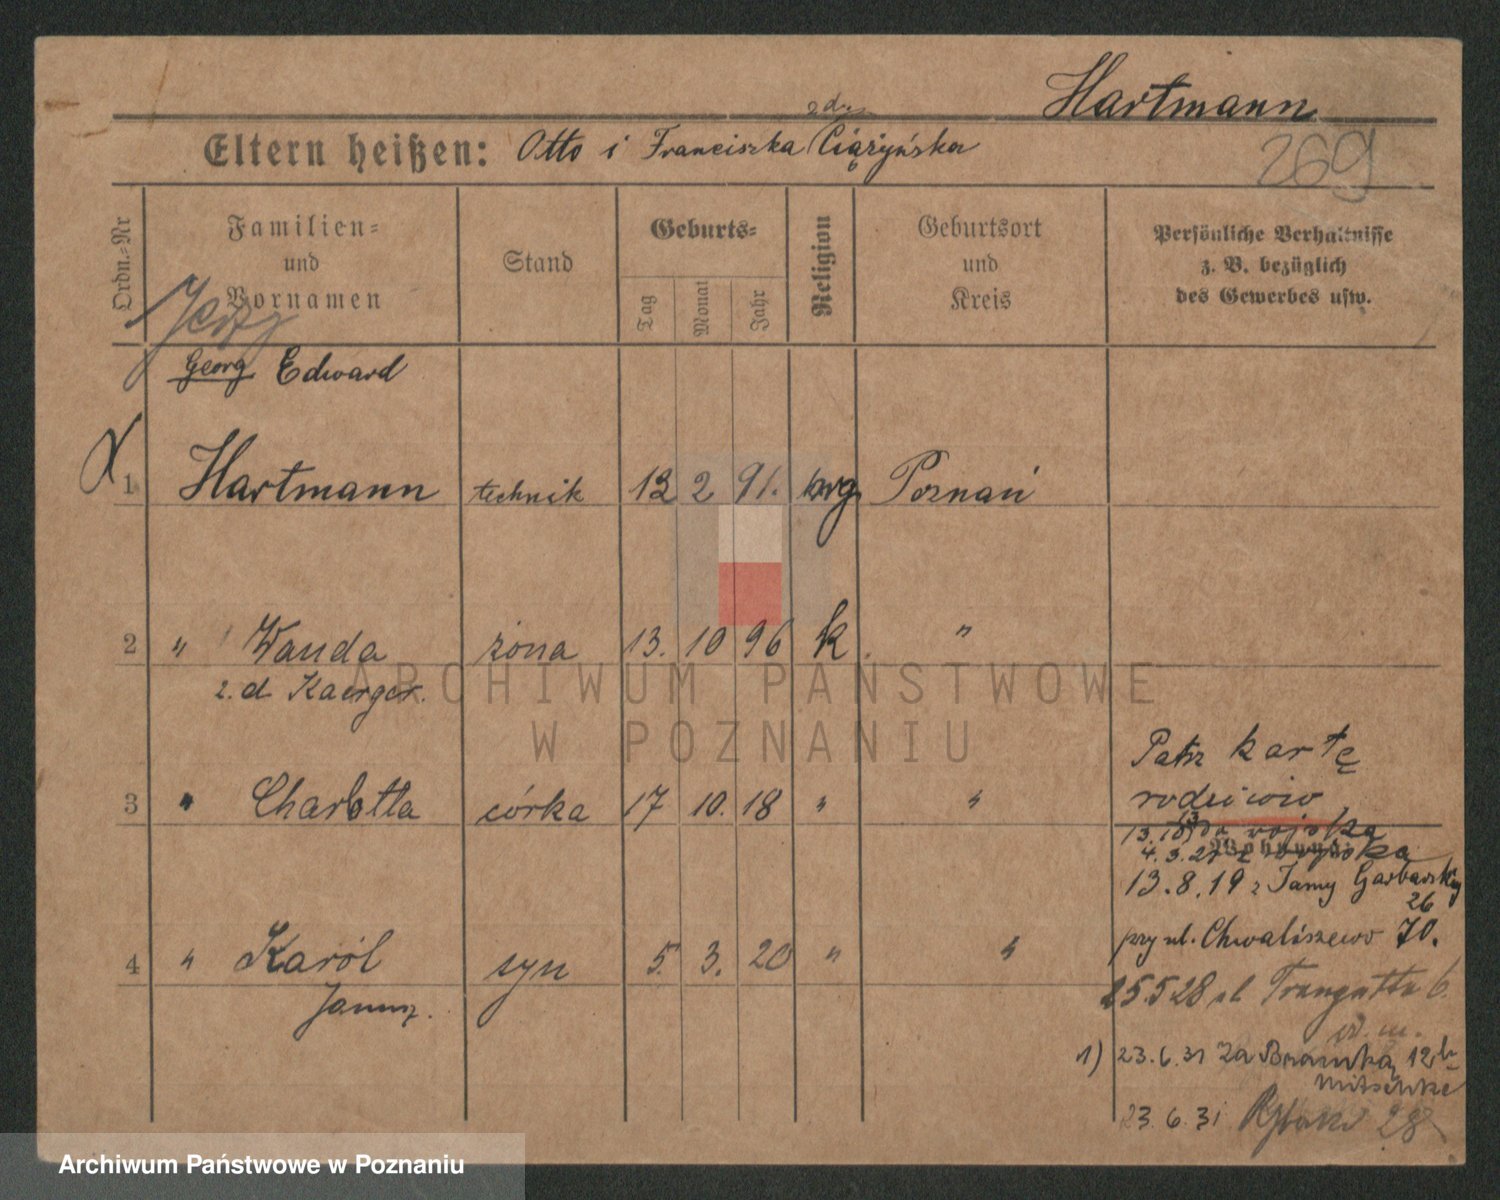 Hartmann
z d.
Eltern heißen: Otto i Franciszka Ciążyńska
269
Ordn.-Nr
Familien-
und
Vornamen
Stand
Geburts-
Tag
Monat
Jahr
Religion
Geburtsort
und
Kreis
Persönliche Verhältnisse
z. B. bezüglich
des Gewerbes usw.
Jerzy
Georg Edward
1 Hartmann technik 12 2 91. Poznań
2 " Wanda żona 13. 10 96 k. "
z. d. Kaerger.
Patrz kartę
rodziców
3 " Charlotta córka 17 10. 18 " "
do wojska
4.3.21 z wojska
Wohnung:
13.8.19 z Jamy Garbarskiej
26
przy ul. Chwaliszewo 70.
4 " Karól syn 5. 3. 20 " "
Janusz.
25.5.28 ul Traugutta 6.
1) 23.6.31 Za Bramką 12b
Mitschke
23.6.31 28
ARCHIWUM PAŃSTWOWE
W POZNANIU
Archiwum Państwowe w Poznaniu